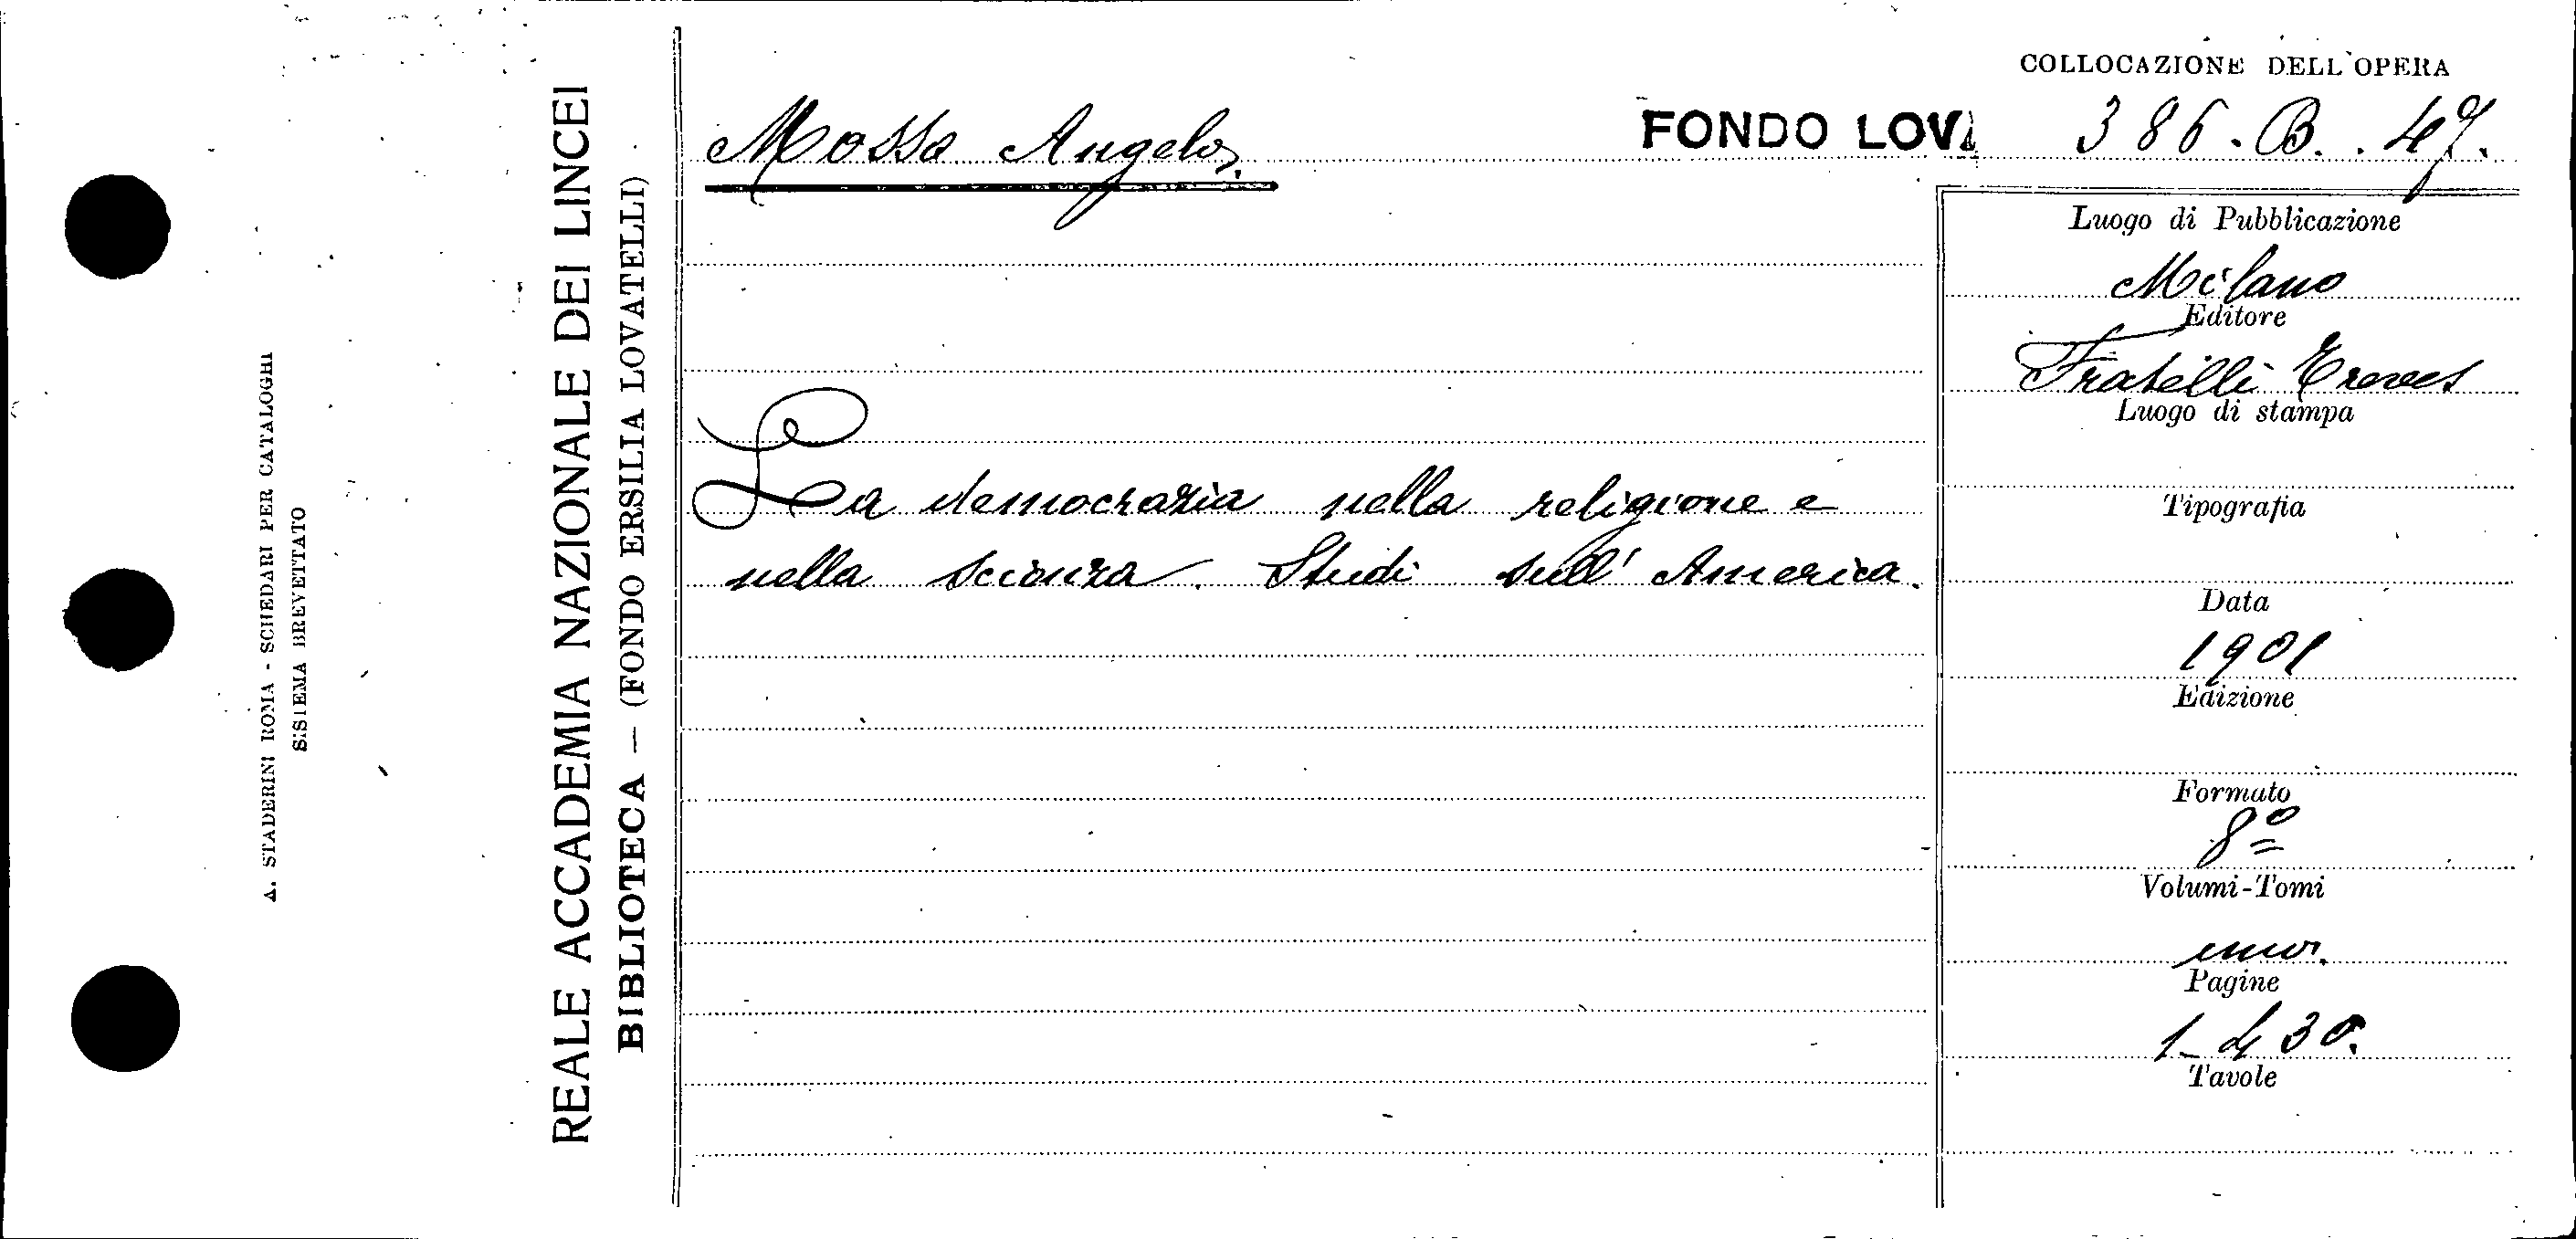 A. STADERINI ROMA - SCHEDARI PER CATALOGHI
SISTEMA BREVETTATO
REALE ACCADEMIA NAZIONALE DEI LINCEI
BIBLIOTECA — (FONDO ERSILIA LOVATELLI)
COLLOCAZIONE DELL'OPERA
FONDO LOV. 386. B. 47.
Mosso Angelo.
La democrazia nella religione e
nella scienza. Studi sull' America.
Luogo di Pubblicazione
Milano
Editore
Fratelli Treves
Luogo di stampa
Tipografia
Data
1901
Edizione
Formato
8º
Volumi-Tomi
uno.
Pagine
1-430.
Tavole